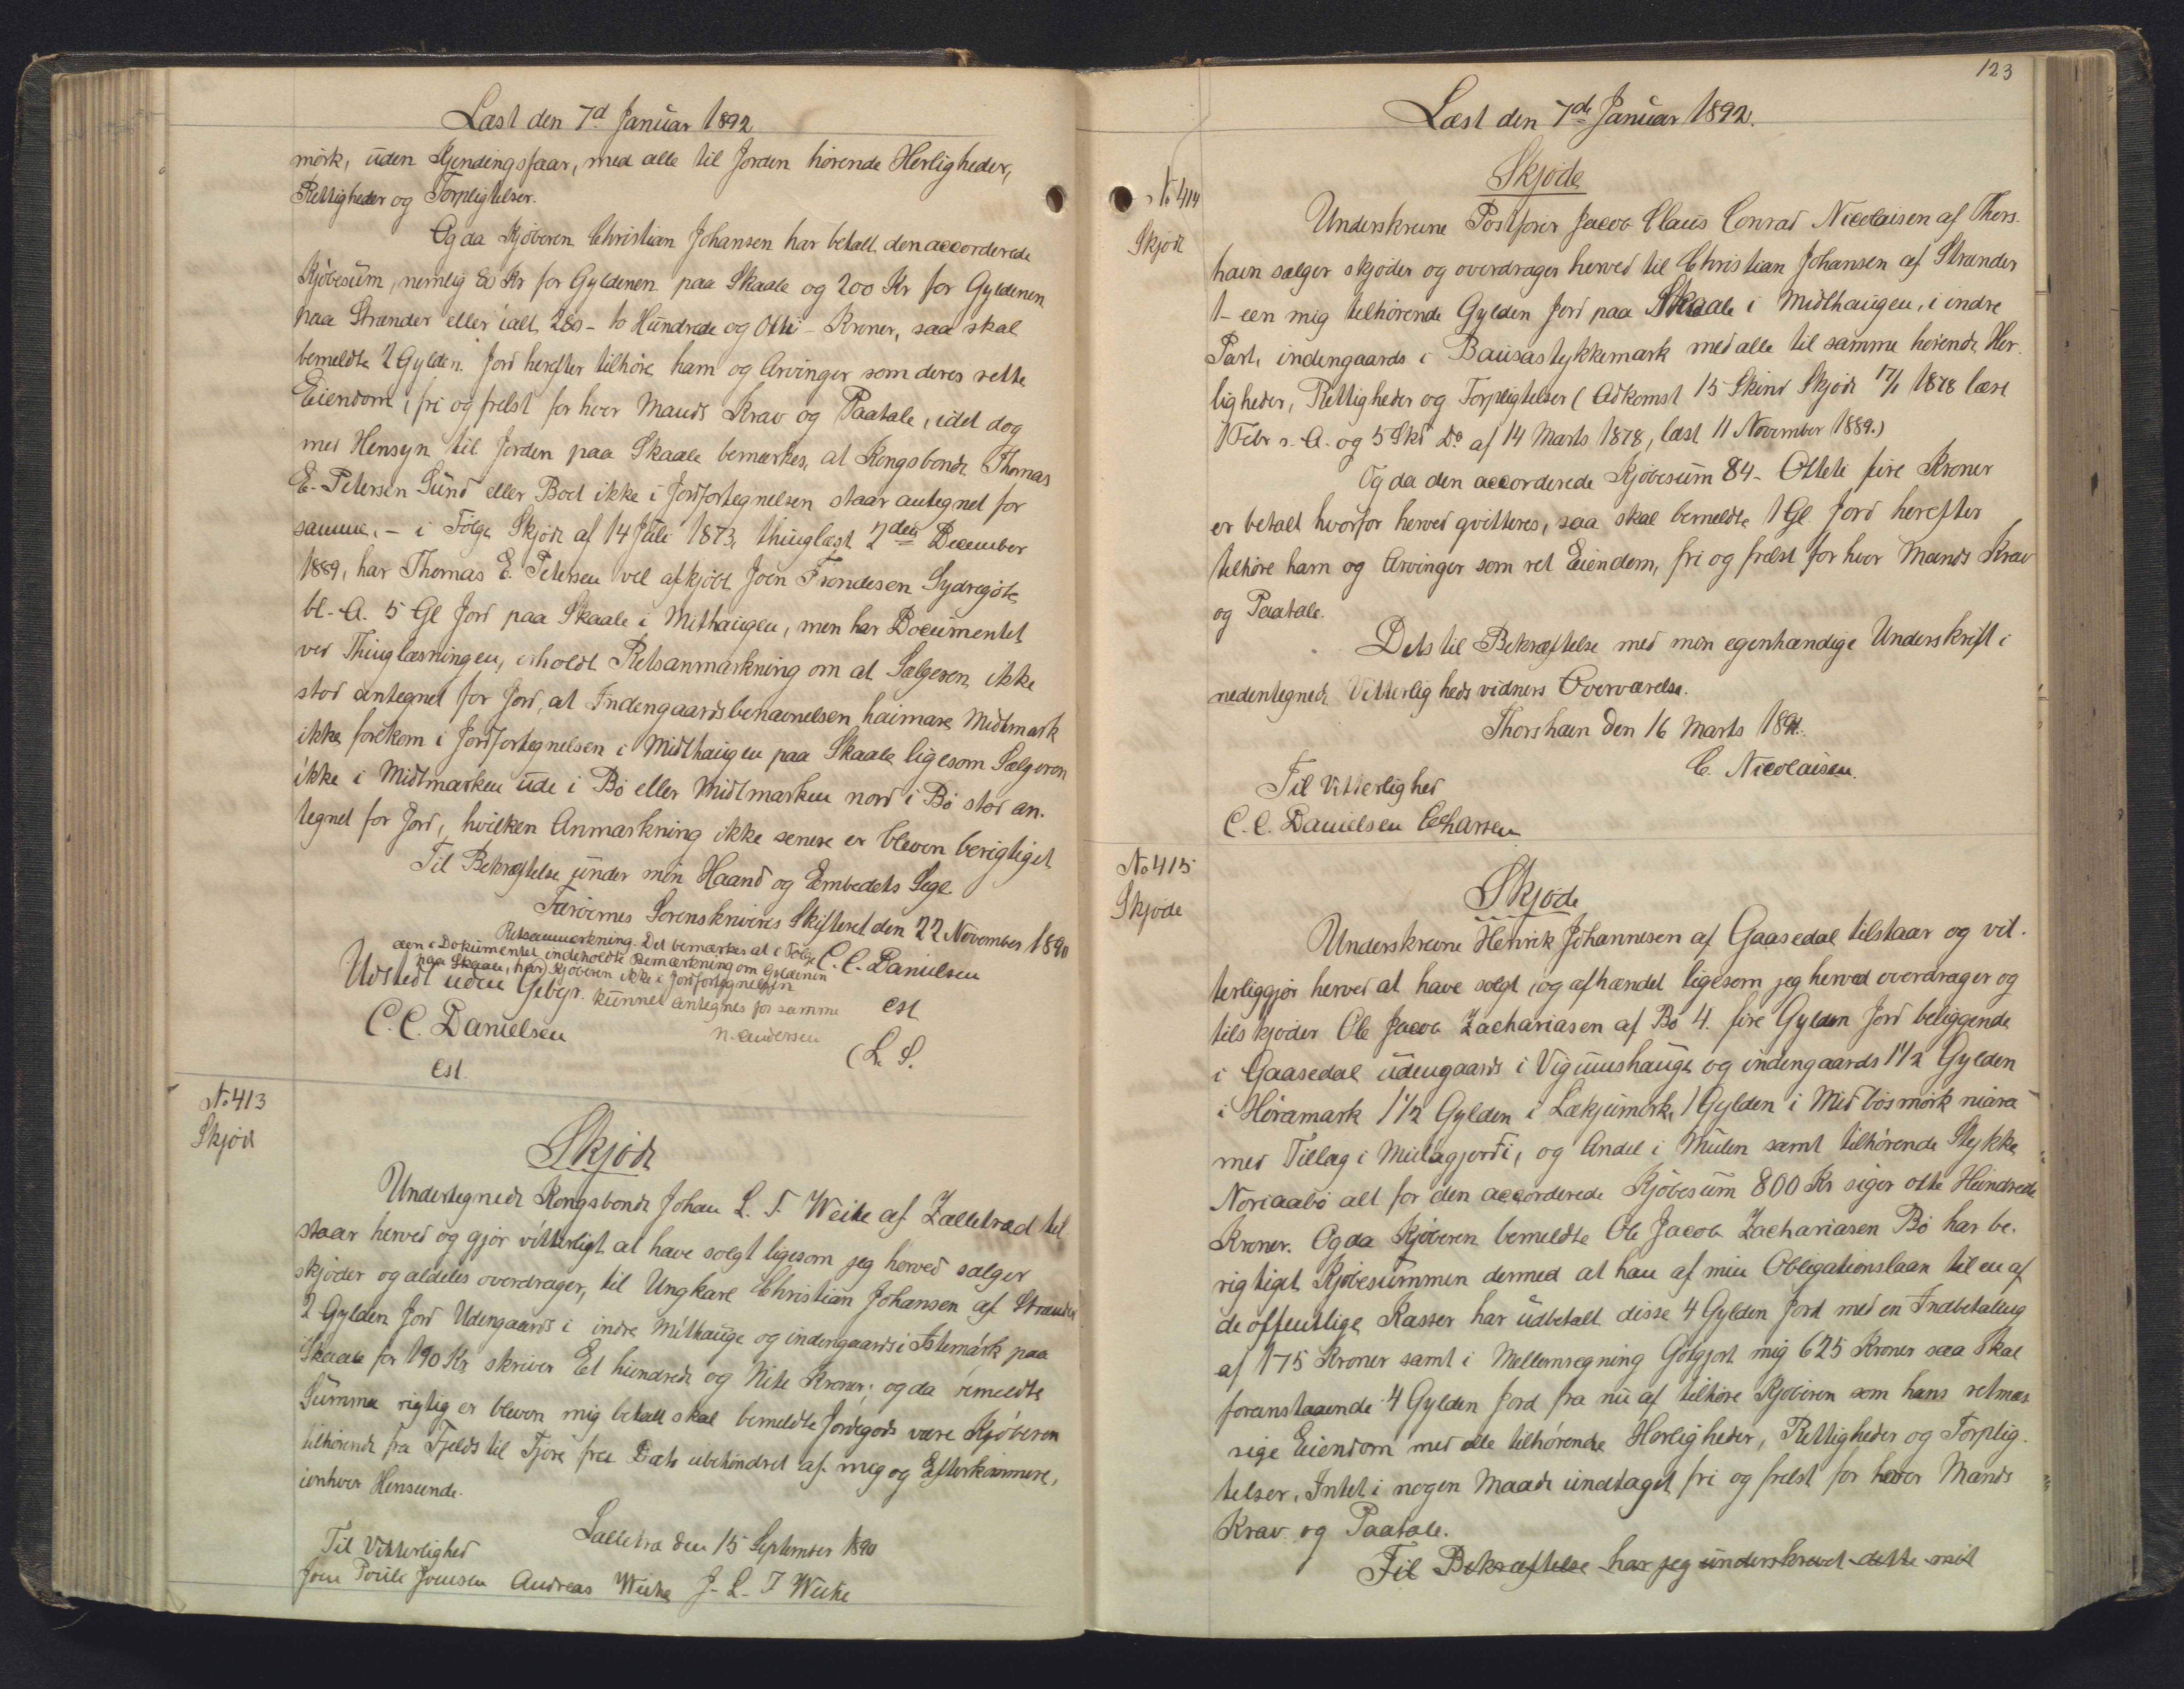 Læst den 7d Januar 1892
mörk, uden Kjendingsfaar, med alle til Jorden hörende Herligheder,
Rettigheder og Forpligtelser.
Og da Kjöberen Christian Johansen har betalt den accorderede
Kjöbesum, nemlig 80 Kr for Gyldenen paa Skaale og 200 Kr for Gyldenen
paa Strænder eller ialt 280 - to Hundrede og Otti - Kroner, saa skal
bemeldte 2 Gylden Jord herefter tilhöre ham og Arvinger som deres rette
Eiendom, fri og frelst for hver Mands Krav og Paatale, idet dog
med Hensyn til Jorden paa Skaale bemærkes, at Kongsbonde Thomas
E. Petersen Sund eller Boet ikke i Jordfortegnelsen staar antegnet for
samme. - i Fölge Skjöde af 14 Juli 1873, thinglæst 2den December
1889, har Thomas E. Petersen vel afkjöbt Joen Trondesen Sydregöte
bl. A. 5 Gl Jord paa Skaale i Mithaugen, men har Documentet
ved Thinglæsningen, erholdt Retsanmærkning om at Sælgeren ikke
stod antegnet for Jord, at Indengaardsbenævnelsen haimare Midtmark
ikke forekom i Jordfortegnelsen i Midthaugen paa Skaale ligesom Sælgeren
ikke i Midtmarken ude i Bö eller Midtmarken nord i Bö stod an-
tegnet for Jord, hvilken Anmærkning ikke senere er bleven berigtiget
Til Bekræftelse under min Haand og Embedets Segl
Færöernes Sorenskriveris Skifteret den 22 November 1890
Retsanmærkning. Det bemærkes at i Fölge C. C. Danielsen
den i Dokumentet indeholdte Bemærkning om Gyldenen
paa Skaale, har Kjöberen ikke i Jordfortegnelsen
Udstedt uden Gebyr. kunnet antegnes for samme est
C. C. Danielsen N. Andersen
(L. S.
est.
No 413
Skjöde
Skjöde
Undertegnede Kongsbonde Johan L. T. Weihe af Zalletrad til-
staar herved og gjör vitterligt at have solgt ligesom jeg herved sælger
skjöder og aldeles overdrager, til Ungkarl Christian Johansen af Strænder
2 Gylden Jord Udengaards i indre Mithauge og indengaards i Astemårk paa
Skaale for 190 Kr skriver Et hundrede og Niti Kroner; og da bemeldte
Summa rigtig er bleven mig betalt skal bemeldte Jordegods være Kjöberen
tilhörende fra Fjelds til Fjöre fra Dato ubehindret af mig og Efterkommere,
ienhver Henseende.
Lalletra den 15 September 1890
Til Vitterlighed
Joen Poule Joensen Andreas Weihe J. L. T Weihe
123
Læst den 7de Januar 1892.
No 414
Skjöde
Skjöde
Underskrevne Postförer Jacob Claus Conrad Nicolaisen af Thors-
havn sælger skjöder og overdrager herved til Christian Johansen af Strænder
1 - een mig tilhörende Gylden Jord paa Skaale i Midthaugen, i indre
Part, indengaards i Bausastykkemark med alle til samme hörende Her-
ligheder, Rettigheder og Forpligtelser (Adkomst 15 Skind Skjöde 17/1 1878 læst
1 Febr s. A. og 5 Skd Do af 14 Marts 1878, læst 11 November 1889.)
Og da den accorderede Kjöbesum 84 - Otteti fire Kroner
er betalt hvorfor herved qvitteres, saa skal bemeldte 1 Gl. Jord herefter
tilhöre ham og Arvinger som ret Eiendom, fri og frelst for hver Mands Krav
og Paatale.
Dets til Bekræftelse med min egenhændige Underskrift i
nedentegnede Vitterligheds vidners Overværelse.
Thorshavn den 16 Marts 1891.
C. Nicolaisen.
Til Vitterlighed
C. C. Danielsen
No 415
Skjöde
Skjöde
Underskrevne Henrik Johannesen af Gaasedal tilstaar og vit-
terliggjör herved at have solgt og afhændet ligesom jeg herved overdrager og
tilskjöder Ole Jacob Zachariasen af Bö 4. fire Gylden Jord beliggende
i Gaasedal udengaards i Vigunshauge og indengaards 1 1/2 Gylden
i Höramark 1 1/2 Gylden i Lækjumörk, 1 Gylden i Midbösmörk niara
med Tillæg i Midlagjerdi, og Andel i Mulen samt tilhörende Stykke
Noriaabö alt for den accorderede Kjöbesum 800 Kr siger otte Hundrede
Kroner. Og da Kjöberen bemeldte Ole Jacob Zachariasen Bö har be-
rigtiget Kjöbesummen dermed at han af min Obligationslaan til en af
de offentlige Kasser har udbetalt disse 4 Gylden Jord med en Indbetaling
af 175 Kroner samt i Mellemregning Godgjort mig 625 Kroner saa skal
foranstaaende 4 Gylden Jord fra nu af tilhöre Kjöberen som hans retmæs-
sige Eiendom med alle tilhörende Herligheder, Rettigheder og Forplig-
telser, Intet i nogen Maade undtaget fri og frelst for hver Mands
Krav og Paatale.
Til Bekræftelse har jeg underskrevet dette mit